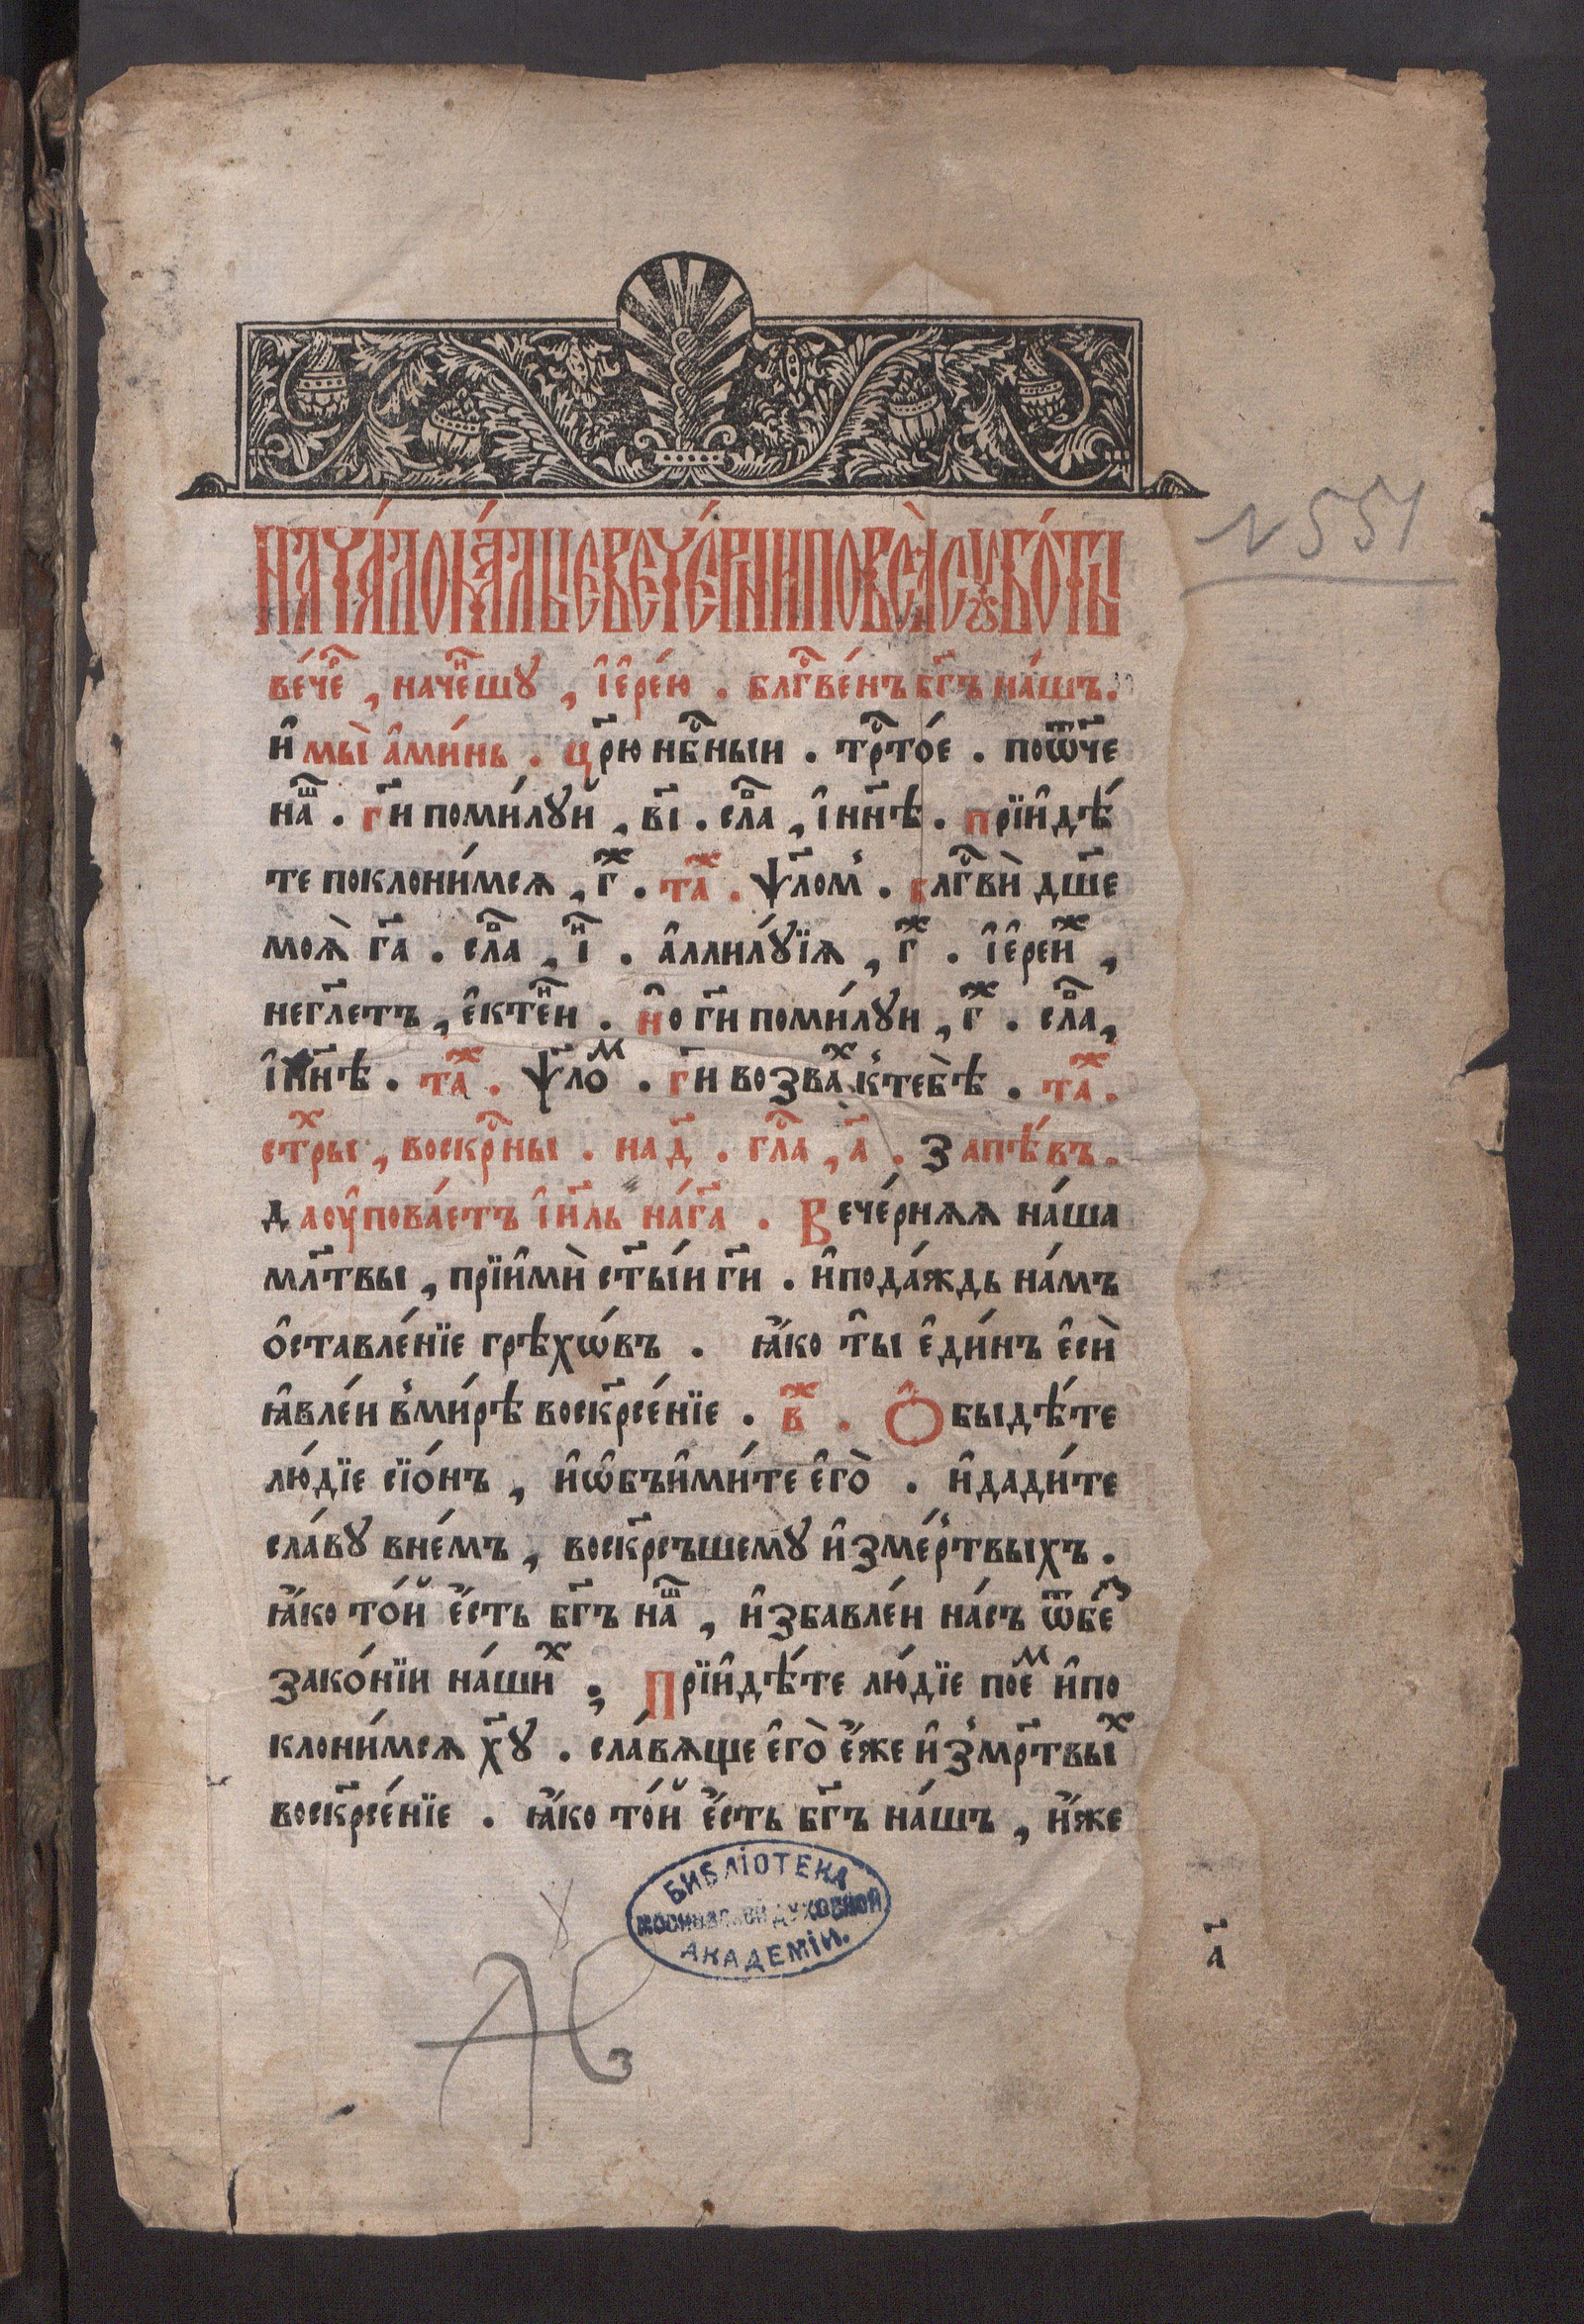 НАЧА́ЛО МА́ЛЫЕ ВЕЧЕ́РНИ ПО ВСѦ̀ СꙊБѠ́ТЫ
ве́че҇ⷬ , наче҇ⷩшꙋ , і҆е҆ре́ю . блг҇ⷭве́нъ бг҃ъ на́шъ.
и҆ мы̀ а҆ми́нь . цр҃ю нб҇ⷭныи . тр҇ⷭто́е . поѿч҃е
на҇ⷲ . гд҃и поми́лꙋй , в҃і . сла҇ⷡ , і҆нн҃ѣ . прїи҆дѣ́
те поклони́мсѧ , г҇ⷤ . та҇ⷤ . ѱл҃ом . блг҇ⷭвѝ дш҃е
моѧ̀ гд҃а . сла҇ⷡ , і҇ⷩ . а҆ллилꙋ́їѧ , г҇ⷤ . і҆е҆рей҇ⷤ ,
неглет҃ъ , е҆кте҇ⷩи . но гд҃и поми́лꙋи , г҇ⷤ . сла҇ⷡ,
і҆нн҃ѣ . та҇ⷤ . ѱл҃оⷨ . гд҃и возва҇ⷯ к̾тебѣ̀ . та҇ⷤ .
ст҇ⷯры , воскр҇ⷭны . на д҃ . гл҇ⷭа , а҃ . Запѣ́въ .
да ᲂу҆пова́етъ і҆ил҃ь на́ гд҃а . Вече́рнѧѧ на́ша
мл҃твы , прїи҆мѝ ст҃ы́и гд҃и . и҆пода́ждь на́мъ
о҆ставле́нїе грѣхѡ́въ . ꙗ҆́ко ты̑ е҆ди́нъ е҆сѝ
ꙗ҆вле́и в̾ми́рѣ воскр҃се́нїе . в҇ⷤ . О҆быдѣ́те
лю́дїе сїо́нъ , и҆ѡ҆бъи҆ми́те е҆го̀ . и҆дади́те
сла́вꙋ внем́ъ , воскр҃съшемꙋ и҆зме́ртвыхъ .
ꙗ҆́ко то́й е҆́сть бг҃ъ на҇ⷲ , и҆збавле́и на́съ ѿбе҇ⷥ
зако́нїи на́ши҇ⷯ . Прїи҆дѣ́те лю́дїе поеⷨ и҆по
клони́мсѧ хⷭ҃ꙋ . сла́вѧще е҆го̀ е҆́же и҆з̾мр҃твы҇ⷯ
воскр҃се́нїе . ꙗ҆́ко то́й е҆́сть бг҃ъ на́шъ , и҆́же
а҃
N 551
БИБЛІОТЕКА
МОСКОВСКОЙ ДУХОВНОЙ
АКАДЕМІИ.